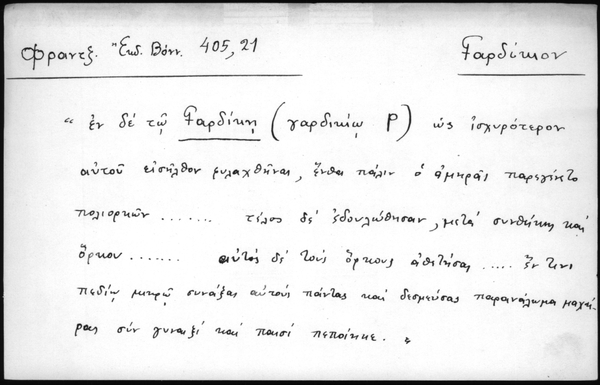 Φραντζ. Ἔκδ. Βόνν. 405,21 Γαρδίκιον
"ἐν δέ τῷ Γαρδίκῃ (γαρδικίῳ P) ὡς ἰσχυρότερον
αὐτοῦ εἰσῆλθον φυλαχθῆναι, ἔνθα πάλιν ὁ ἀμηρᾶς παρεγένετο
πολιορκῶν ....... τέλος δέ ἐδουλώθησαν, μετά συνθήκης καί
ὅρκου ....... αὐτός δέ τούς ὅρκους ἀθετήσας ..... ἔν τινι
πεδίῳ μικρῷ συνάξας αὐτούς πάντας καί δεσμεύσας παρανάλωμα μαχαί-
ρας σύν γυναιξί καί παισί πεποίηκε. "